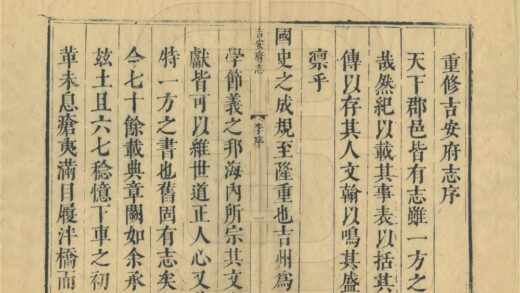 重修吉安府志序
天下郡邑皆有志雖一方之
哉然紀以載其事表以括其
傳以存其人文翰以鳴其盛
禀乎
國史之成規至隆重也吉州爲
吉安府志
李序
學節義之邦海內所宗其文
獻皆可以維世道正人心又
特一方之書也舊固有志矣
今七十餘載典章闕如余承
玆土且六七稔憶下車之初
革未息瘡夷滿目履泮橋而